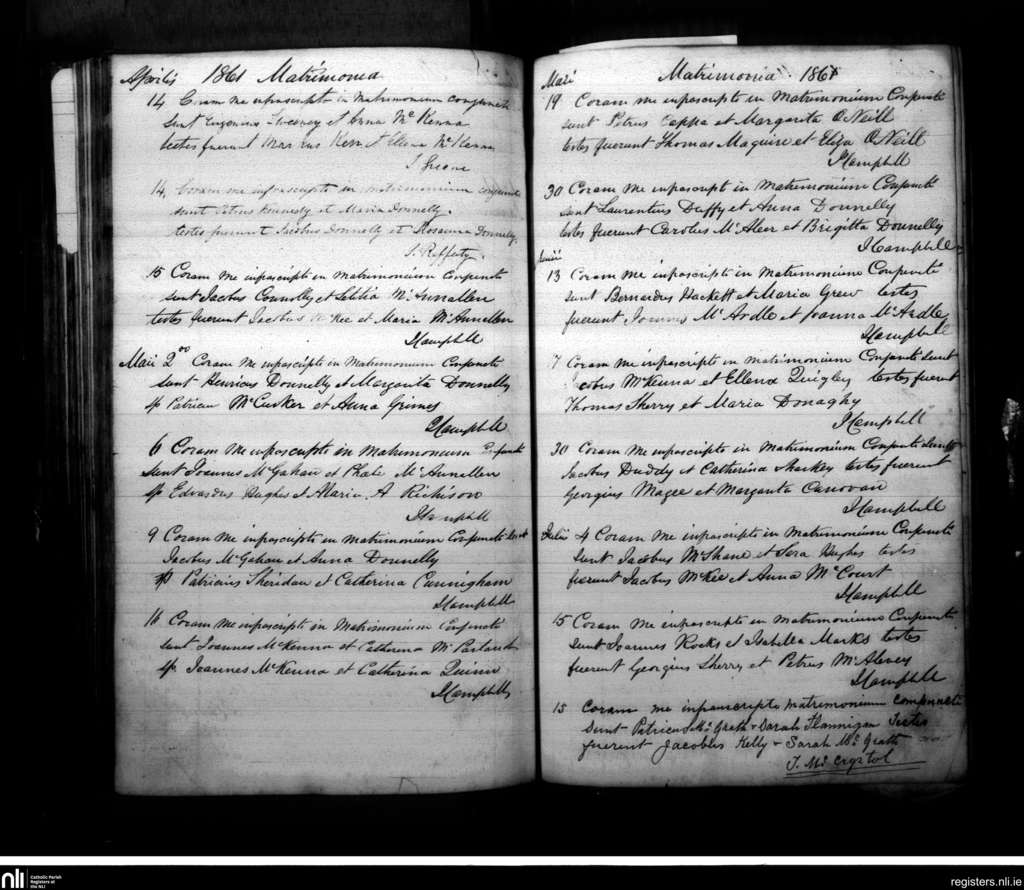 Aprilis 1861 Matrimonia
14 Coram me infrascripto in Matrimonium conjuncti
sunt Eugenius Sweeney et Anna McKenna
testes fuerunt Marcus Kerr et Ellena McKenna
J. Greene
14, Coram me infrascripto in matrimonium conjuncti
sunt Petrus Kennedy et Maria Donnelly.
testes fuerunt Jacobus Donnelly et Rosanna Donnelly.
J. Rafferty
15 Coram me infrascripto in Matrimonium Conjuncti
sunt Jacobus Connolly et Letitia McAnnallen
testes fuerunt Jacobus McKee et Maria McAnnallen
J Campbell
Maii 2 Coram me infrascripto in Matrimonium Conjuncti
sunt Henricus Donnelly et Margarita Donnelly
sp Patrician McCusker et Anna Grimes
J Campbell
6 Coram me infrascripto in Matrimonium Conjuncti
sunt Joannes McGahan et McAnnallen
sp Edvardus Hughes et Maria A Richison
J Campbell
9 Coram me infrascripto in Matrimonium Conjuncti sunt
Jacobus McGahan et Anna Donnelly
sp Patricius Sheridan et Catherina Cunnigham
J Campbell
16 Coram me infrascripto in Matrimonium Conjuncti
sunt Joannes McKenna et Catherina McParland
sp Joannes McKenna et Catherina Quinn
J Campbell
Maii Matrimonia 1861
19 Coram me infrascripto in Matrimonium Conjuncti
sunt Petrus Cappa et Margarita O'Neill
testes fuerunt Thomas Maguire et Eliza O'Neill
J Campbell
30 Coram me infrascripto in Matrimonium Conjuncti
sunt Laurentius Duffy et Anna Donnelly
testes fuerunt Carolus McAleer et Brigitta Donnelly
J Campbell
Junii
13 Coram me infrascripto in Matrimonium Conjuncti
sunt Bernardus Hackett et Maria Grew testes
fuerunt Joannes McArdle et Joanna McArdle
J Campbell
7 Coram me infrascripto in Matrimonium Conjuncti sunt
Jacobus McKenna et Ellena Quigley testes fuerunt
Thomas Sherry et Maria Donaghy
J Campbell
30 Coram me infrascripto in Matrimonium Conjuncti sunt
Jacobus Duddy et Catherina Sharkey testes fuerunt
Georgius Magee et Margarita Canovan
J Campbell
Julii 4 Coram me infrascripto in Matrimonium Conjuncti
sunt Jacobus McShane et Sera Hughes testes
fuerunt Jacobus McKee et Anna McCourt
J Campbell
15 Coram me infrascripto in Matrimonium Conjuncti
sunt Joannes Rocks et Isabella Marks testes
fuerunt Georgius Sherry et Petrus McAlevey
J Campbell
15 Coram me infrascripto matrimonium Conjuncti
sunt Patricus McGrath + Sarah Flannigan Testes
fuerent Jacobus Kelly + Sarah McGrath
J. McCrystol
nli
Catholic Parish
Registers at
the NLI
registers.nli.ie